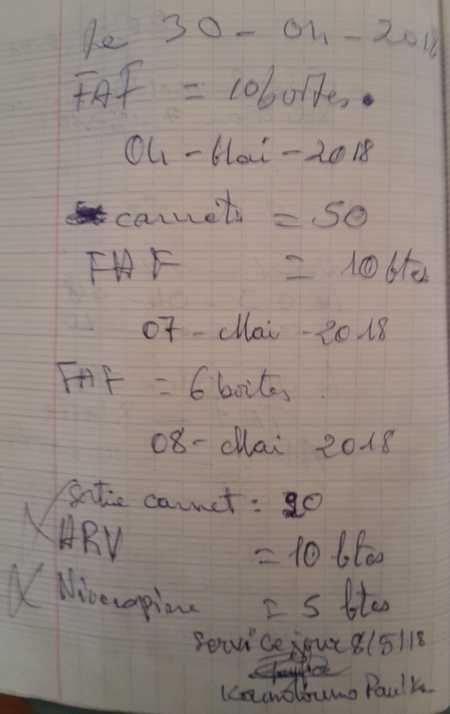 Le 30-04-2018
FAF = 10 boites.
04-Mai-2018
carnets = 50
FAF = 10 btes
07-Mai-2018
FAF = 6 boites
08-Mai 2018
Sortie carnet : 20
ARV = 10 btes
= 5 btes
Service jour 8/5/18